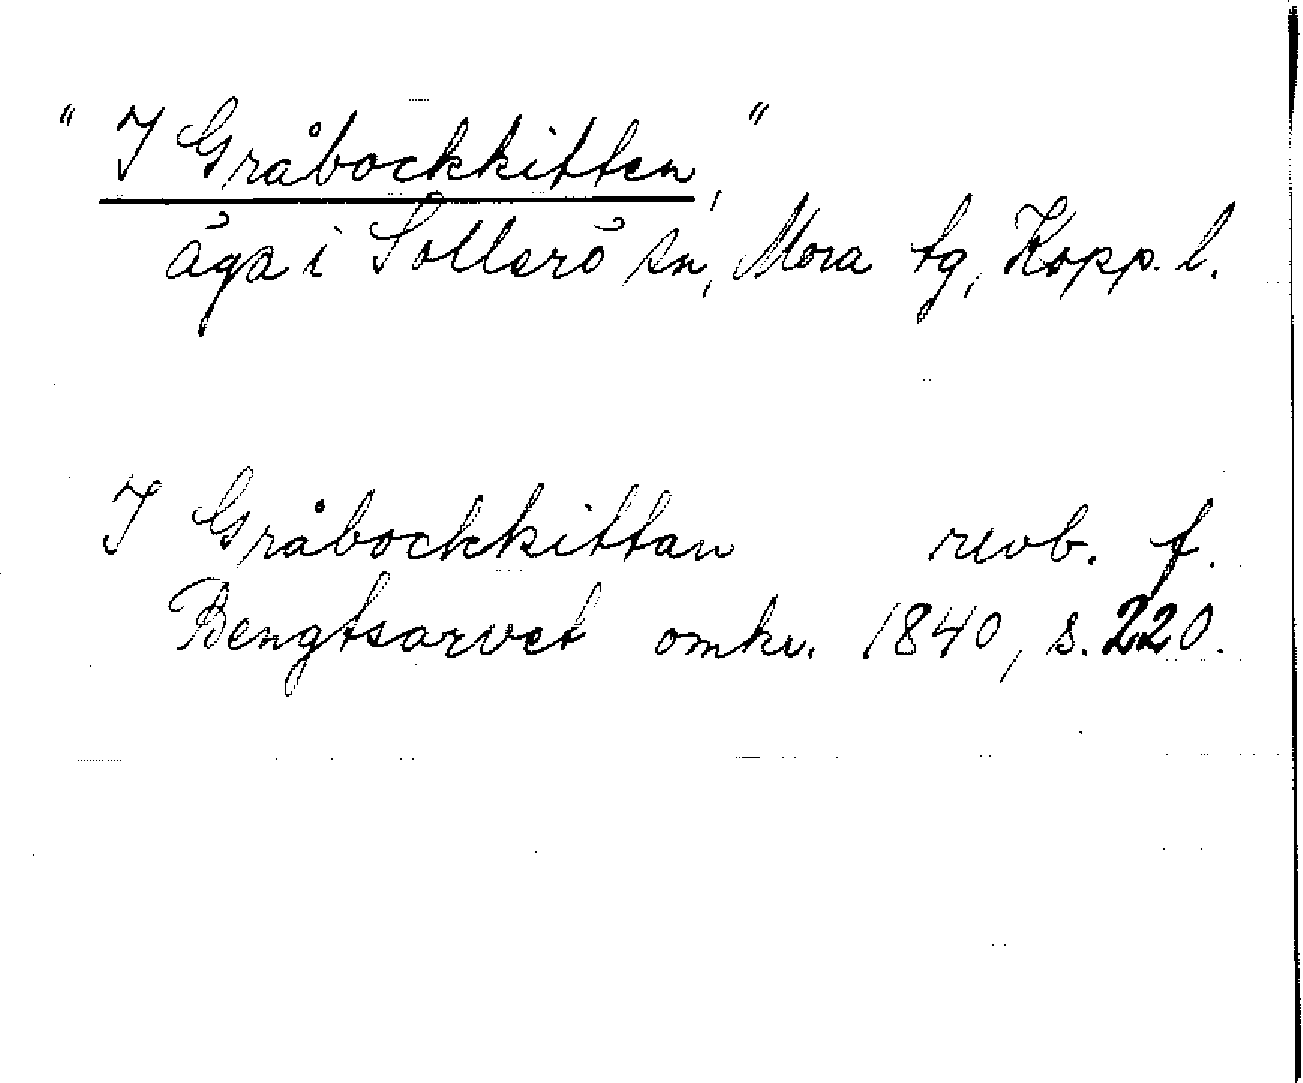 " I Gråbockkitten, "
äga i Sollerö sn, Mora tg, Kopp. l.
I Gråbockkittan revb. f.
Bengtsarvet omkr. 1840, s. 220.